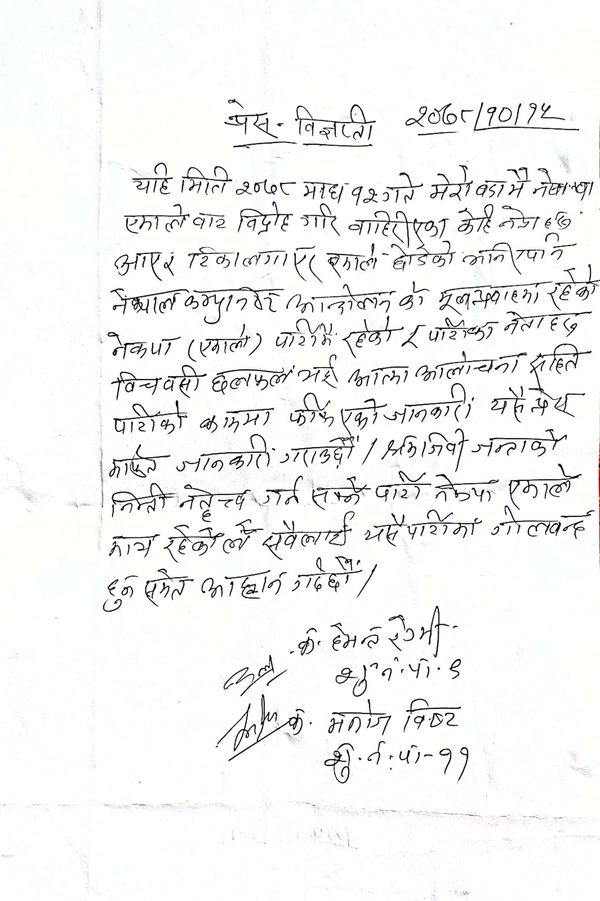 प्रेस - विज्ञप्ती २०७८/१०/१५
यहि मिति २०७८ माघ १२ गते मेरो वडामै नेकपा
एमाले बाट विद्रोह गरि वाहिरीएका केहि नेता
आएर टिका लगाएर एमाले छोडेको भनिएपनि
नेपाल कम्युनिष्ट आन्दोलन को मूलप्रवाहमा रहेको
नेकपा (एमाले) पार्टीमै रहेको र पार्टीका नेताहरु
विचवसी छलफल भई आत्म आलोचना सहित
पार्टीको काममा फर्किएको जानकारी यसै प्रेस
मार्फत जानकारी गराउदछौं। श्रमजिवी जन्ताको
निम्ती नेतृत्व गर्न सक्ने पार्टी नेकपा एमाले
मात्र रहेकोले सवैलाई यसै पार्टीमा गोलवन्द
हुन समेत आह्वान गर्दछौं।
क. हेमन्त रेग्मी
शु. न. पा. ९
क. मनोज विष्ट
शु. न. पा - ११